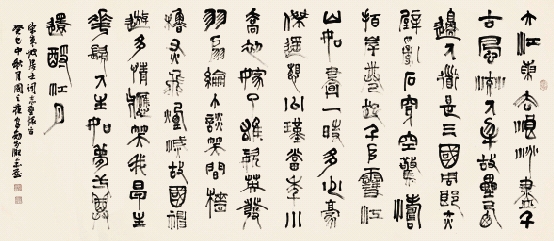 大江東去浪淘盡千
古風流人物故壘西
邊人道是三國周郎赤
壁亂石穿空驚濤
拍岸卷起千堆雪江
山如畫一時多少豪
傑遙想公瑾當年小
喬初嫁了雄姿英發
羽扇綸巾談笑間檣
櫓灰飛煙滅故國神
遊多情應笑我早生
華髮人生如夢一尊
還酹江月
癸巳中秋月圓之夜